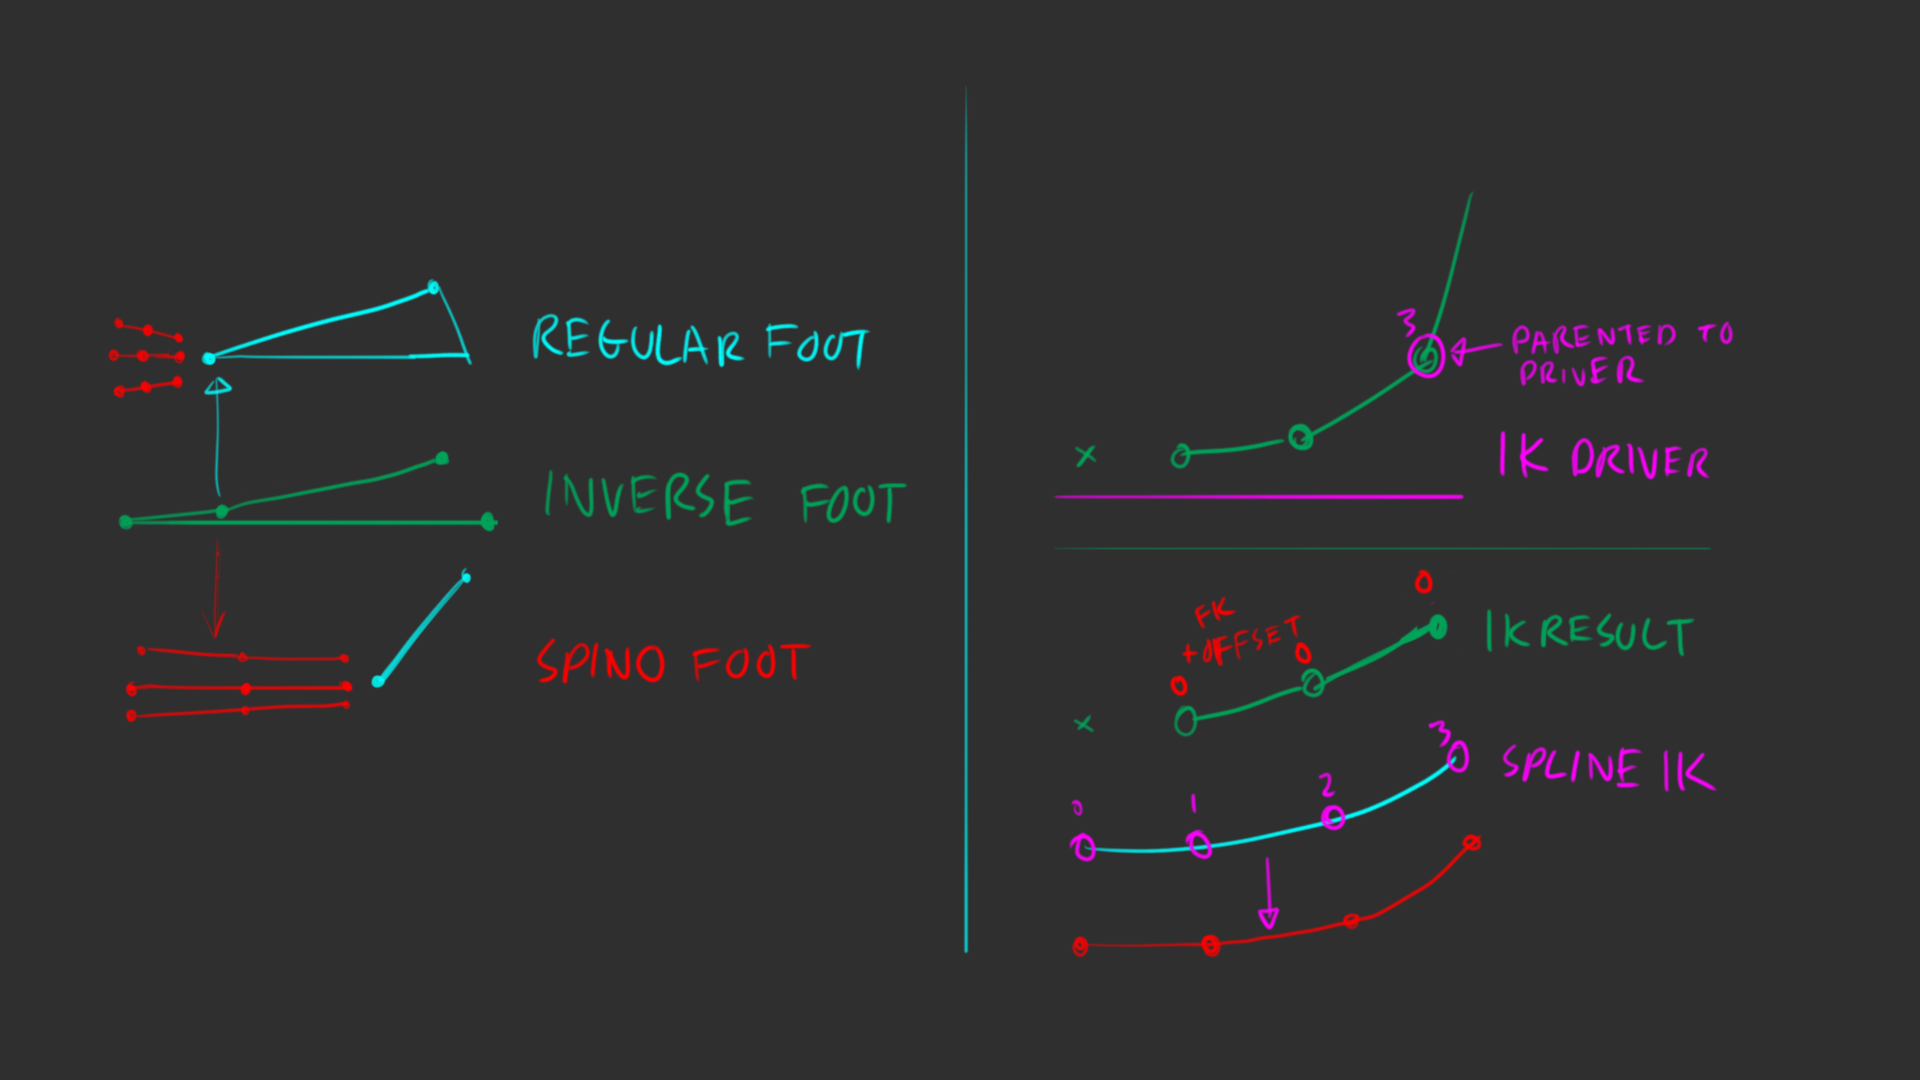 REGULAR FOOT
INVERSE FOOT
SPINO FOOT
3
PARENTED TO
DRIVER
IK DRIVER
x
0
FK
+OFFSET
0
0
IK RESULT
x
3
SPLINE IK
2
0
1